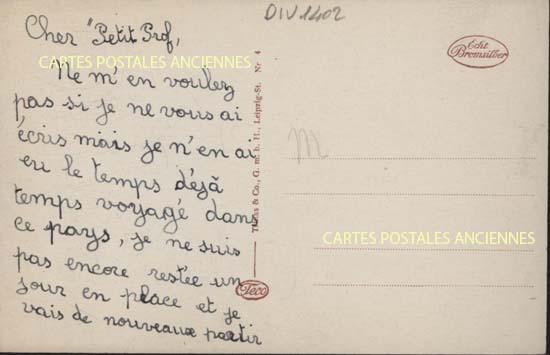 Cher "Petit Prof,
Ne m'en voulez
pas si je ne vous ai
écris mais je n'en ai
eu le temps déjà
temps voyagé dans
ce pays, je ne suis
pas encore restée un
jour en place et je
vais de nouveaux partir
DIV1402
Echt
Bromsilber
CARTES POSTALES ANCIENNES
& Co., G. m. b. H., Leipzig-St. Nr 4
Teco
M
CARTES POSTALES ANCIENNES